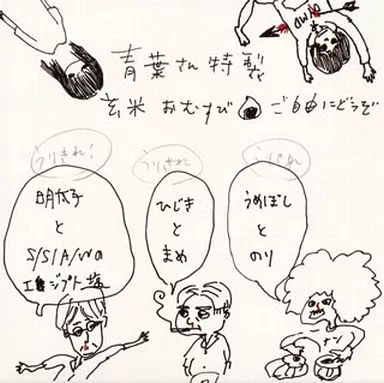 青葉さん特製
玄米 おむすび ご自由にどうぞ
うりきれ!
うりきれ
うりきれ
明太子
と
S/S/A/Wの
工藝ジプト塩
ひじき
と
まめ
うめぼし
と
のり